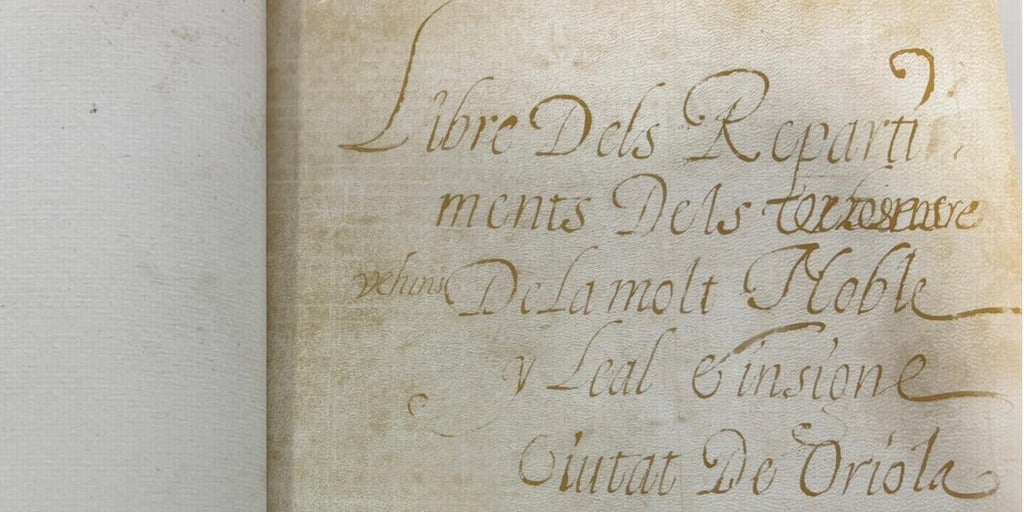 Libre Dels Reparti
ments Dels
vehins De La molt Noble
y Leal & insigne
Ciutat De Oriola